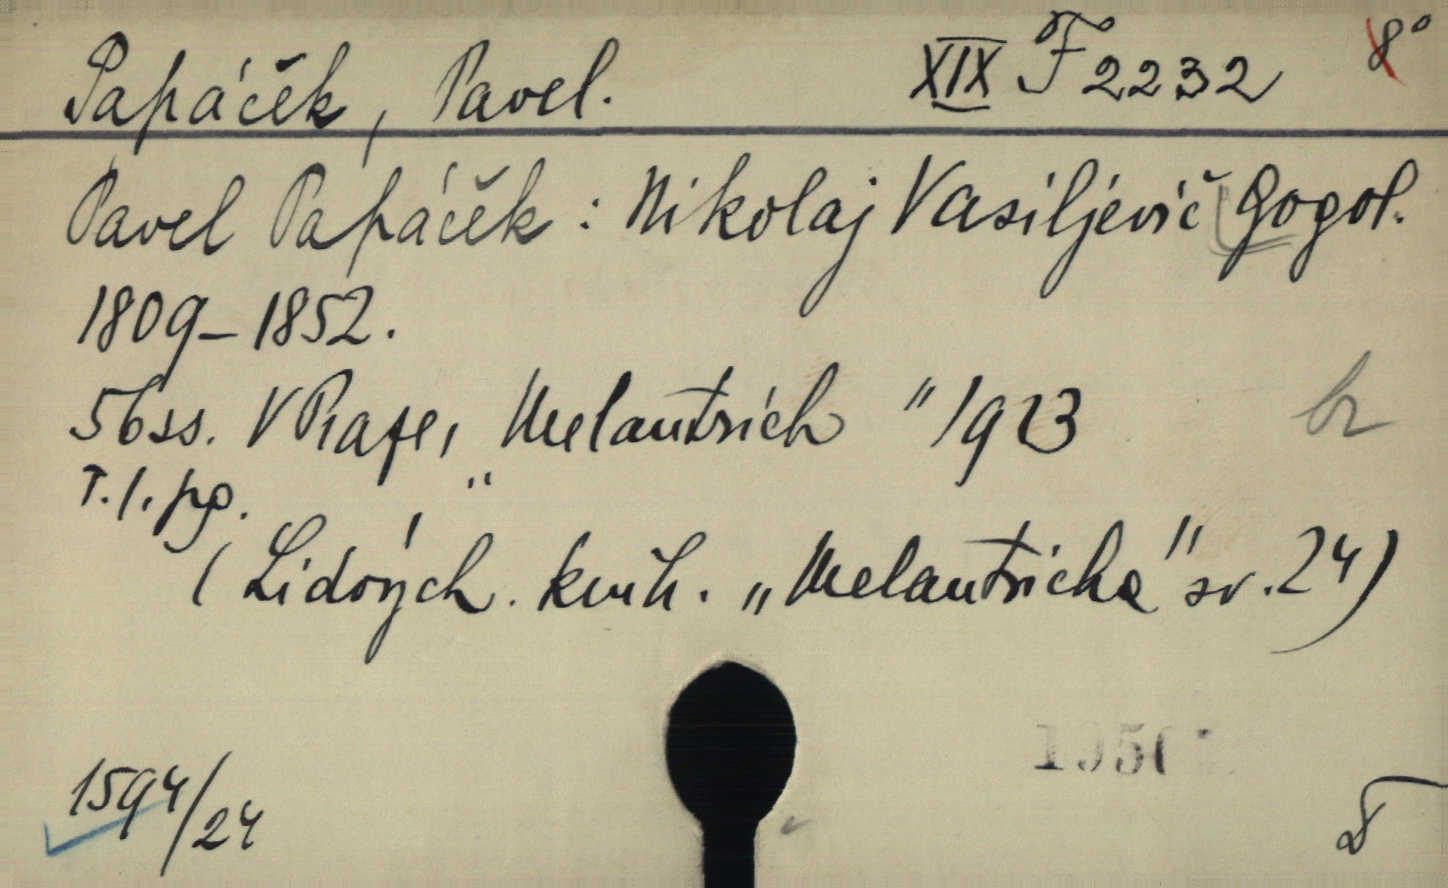 Papáček, Pavel. XIX F 2232 8°
Pavel Papáček: Nikolaj Vasiljevič Gogol.
1809–1852.
56 ss. V Praze, „Melantrich" 1923 br
T. l. pg.
(Lidových knih. „Melantricha" sv. 24)
1594/24